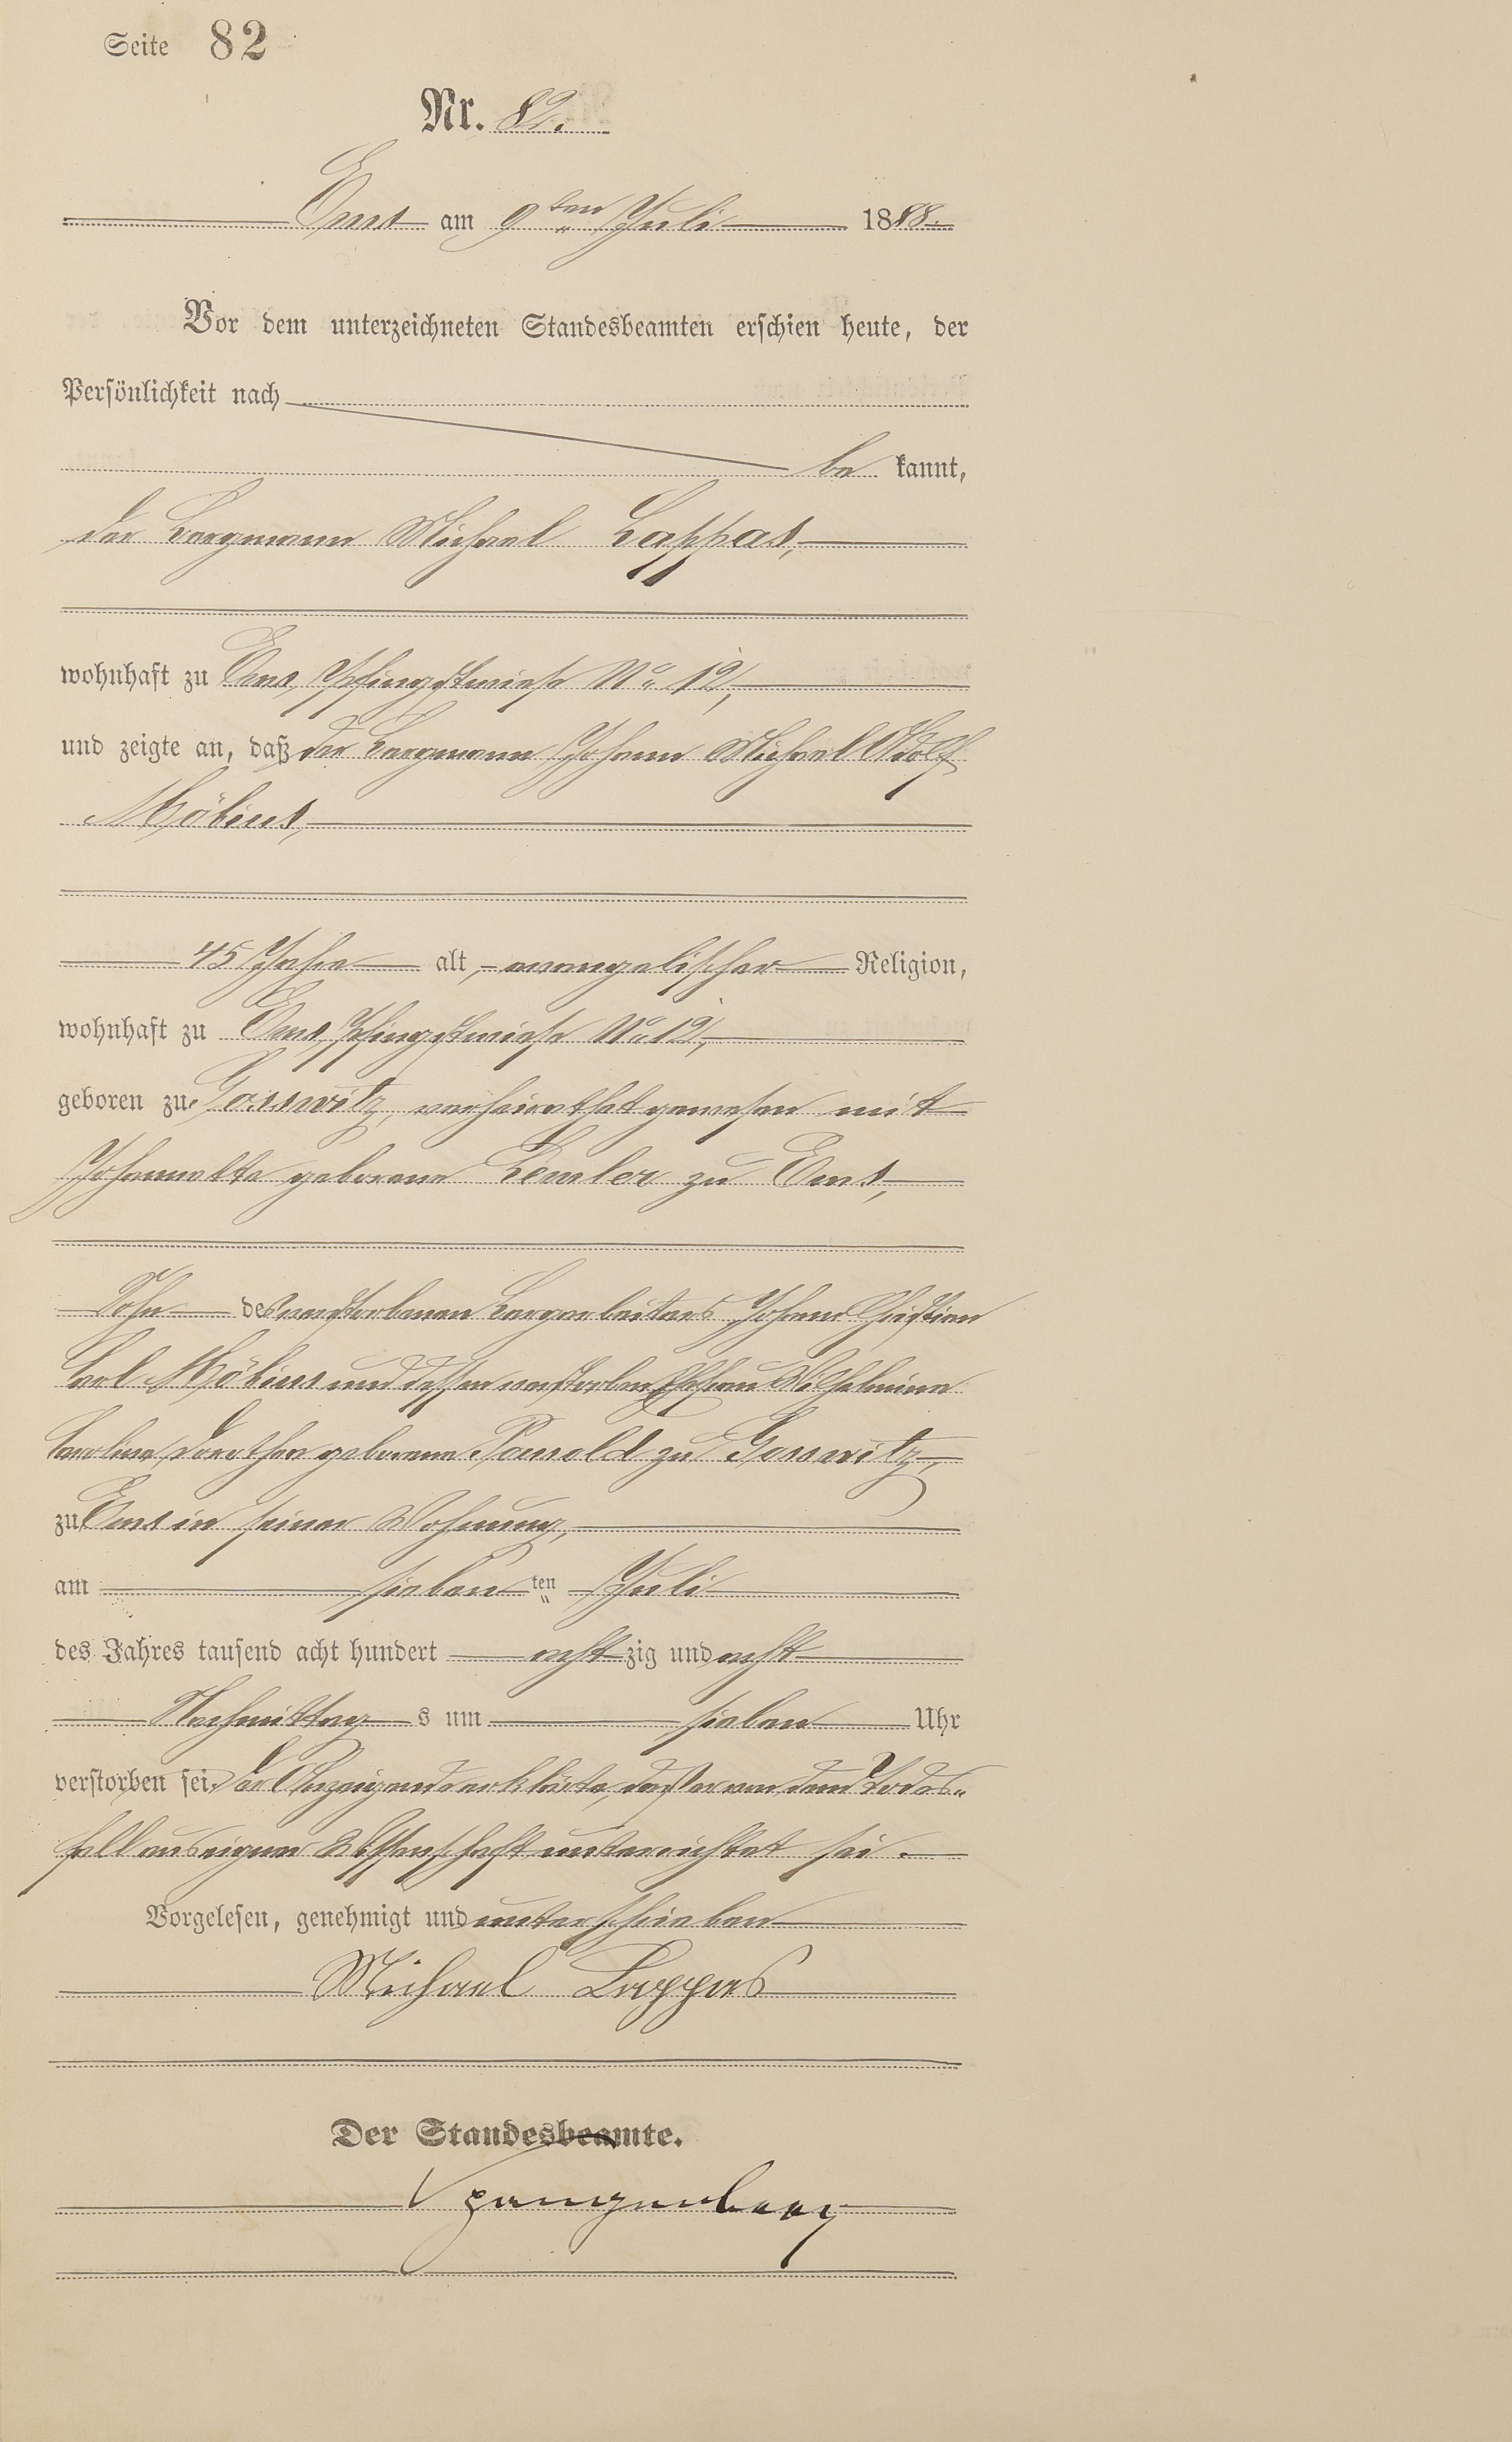 Seite 82
Nr. 82.
Ems am 9ten Juli 1888.
Vor dem unterzeichneten Standesbeamten erschien heute, der
Persönlichkeit nach
be kannt,
der Bergmann Michael Lappas,
wohnhaft zu Ems, Pfingstwiese No 12,
und zeigte an, daß der Bergmann Johann Michael Adolf
Möbius,
45 Jahre alt, evangelischer Religion,
wohnhaft zu Ems, Pfingstwiese No 12,
geboren zu Gosswitz, verheirathet gewesen mit
Johannette geborene Lemler zu Ems,
Sohn des verstorbenen Bergarbeiters Johann Christian
Karl Möbius und dessen verstorben Ehefrau Wilhelmine
Karoline Dorothea geborene Pansold zu Gosswitz,
zu Ems in seiner Wohnung,
am sieben ten Juli
des Jahres tausend acht hundert acht zig und acht
Nachmittag s um sieben Uhr
verstorben sei. Der Anzeigende erklärte, daß er von dem Todes-
fall aus eigner Wissenschaft unterrichtet sei.
Vorgelesen, genehmigt und unterschrieben
Michael Lappas
Der Standesbeamte.
Spangenberg